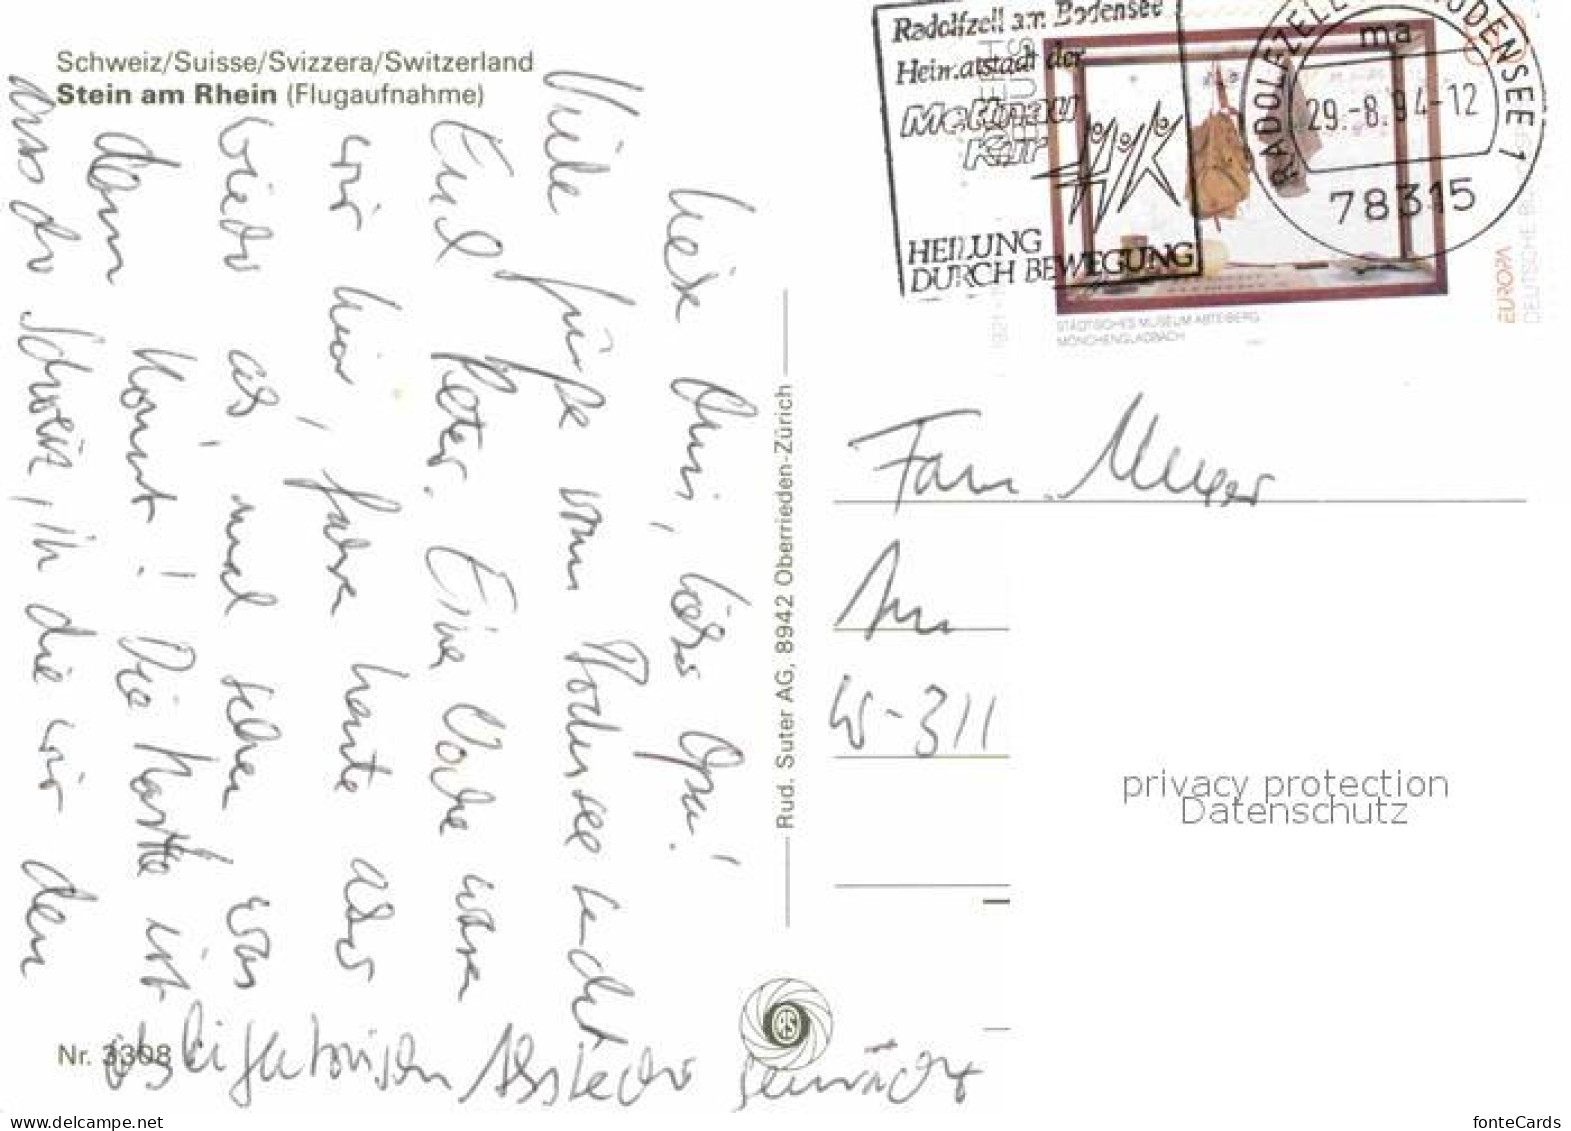 Schweiz/Suisse/Svizzera/Switzerland
Stein am Rhein (Flugaufnahme)
Liebe Omi, lieber Opa!
Viele Grüße vom Bodensee sendet
Euch Peter. Eine Woche waren
wir hier, fahren heute aber
wieder ab, mal sehen was
dann kommt! Die Karte ist
aus der Schweiz, in die wir den
obligatorischen Abstecher gemacht
Nr. 3308
Rud. Suter AG, 8942 Oberrieden-Zürich
RS
Radolfzell am Bodensee
Heimatstadt der
Mettnau
Kur
HEILUNG
DURCH BEWEGUNG
RADOLFZELL BODENSEE 1
ma
29.-8.94-12
78315
STÄDTISCHES MUSEUM ABTEIBERG
MÖNCHENGLADBACH
EUROPA
DEUTSCHE
Fam. Meyer
W-311
privacy protection
Datenschutz
www.delcampe.net
fonteCards